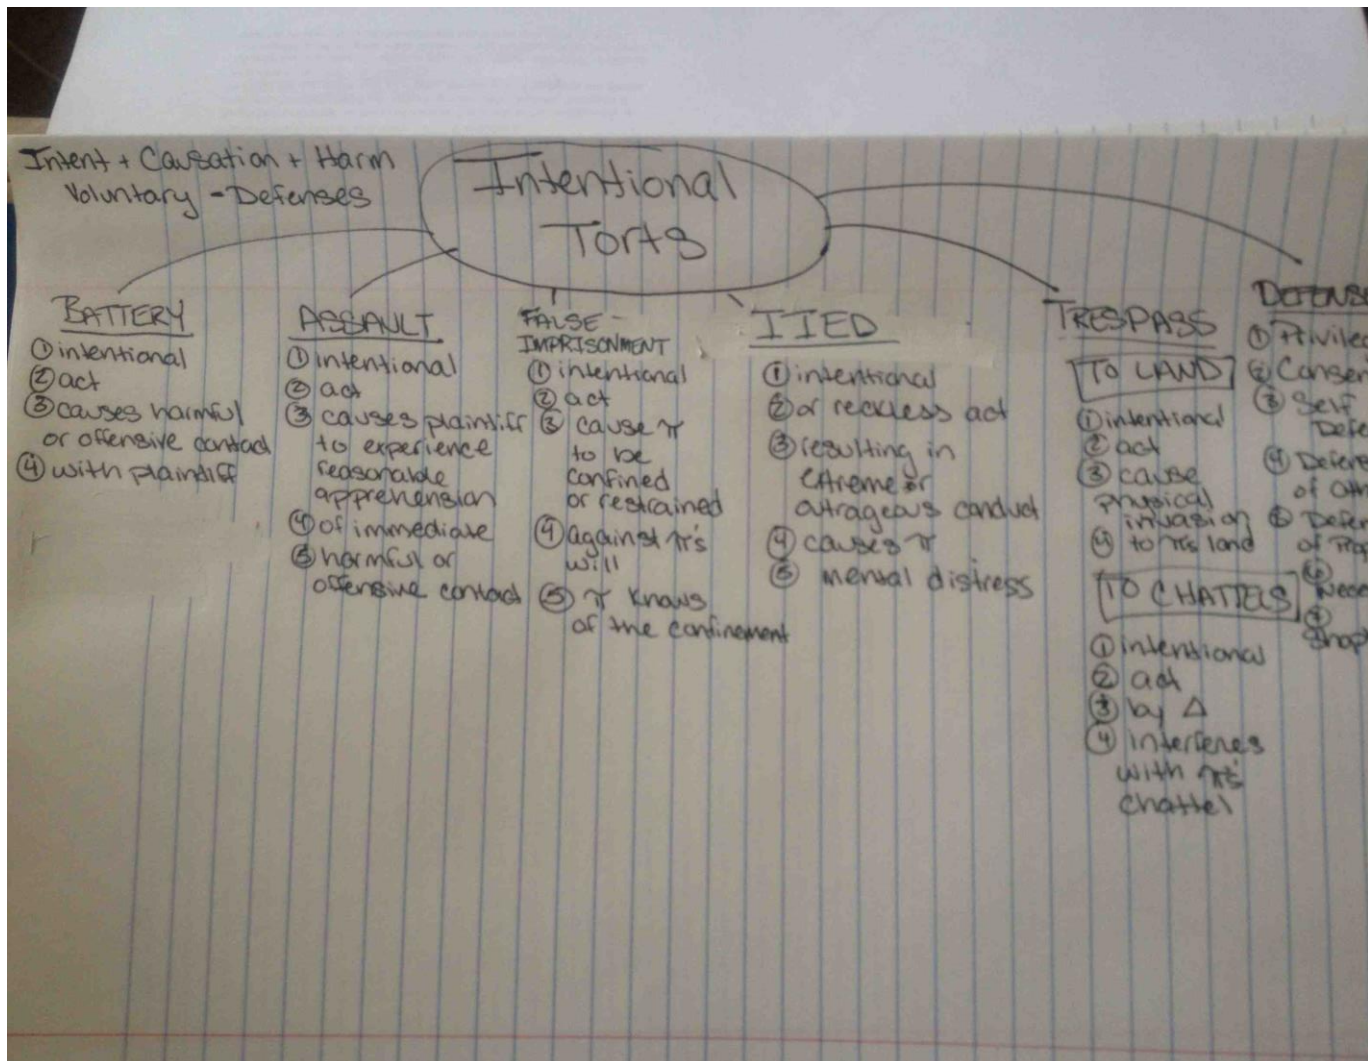 Intent + Causation + Harm
Voluntary - Defenses
Intentional
Torts
BATTERY
① intentional
② act
③ causes harmful
or offensive contact
④ with plaintiff
ASSAULT
① intentional
② act
③ causes plaintiff
to experience
reasonable
apprehension
④ of immediate
⑤ harmful or
offensive contact
FALSE -
IMPRISONMENT
① intentional
② act
③ cause π
to be
confined
or restrained
④ against π's
will
⑤ π knows
of the confinement
IIED
① intentional
② or reckless act
③ resulting in
extreme or
outrageous conduct
④ causes π
⑤ mental distress
TRESPASS
TO LAND
① intentional
② act
③ cause
physical
invasion
④ to π's land
TO CHATTELS
① intentional
② act
③ by Δ
④ interferes
with π's
chattel
DEFENSE
① Privileg
② Consen
③ Self
Defe
④ Defens
of oth
⑤ Defen
of Prop
⑥
Nece
⑦
Shop